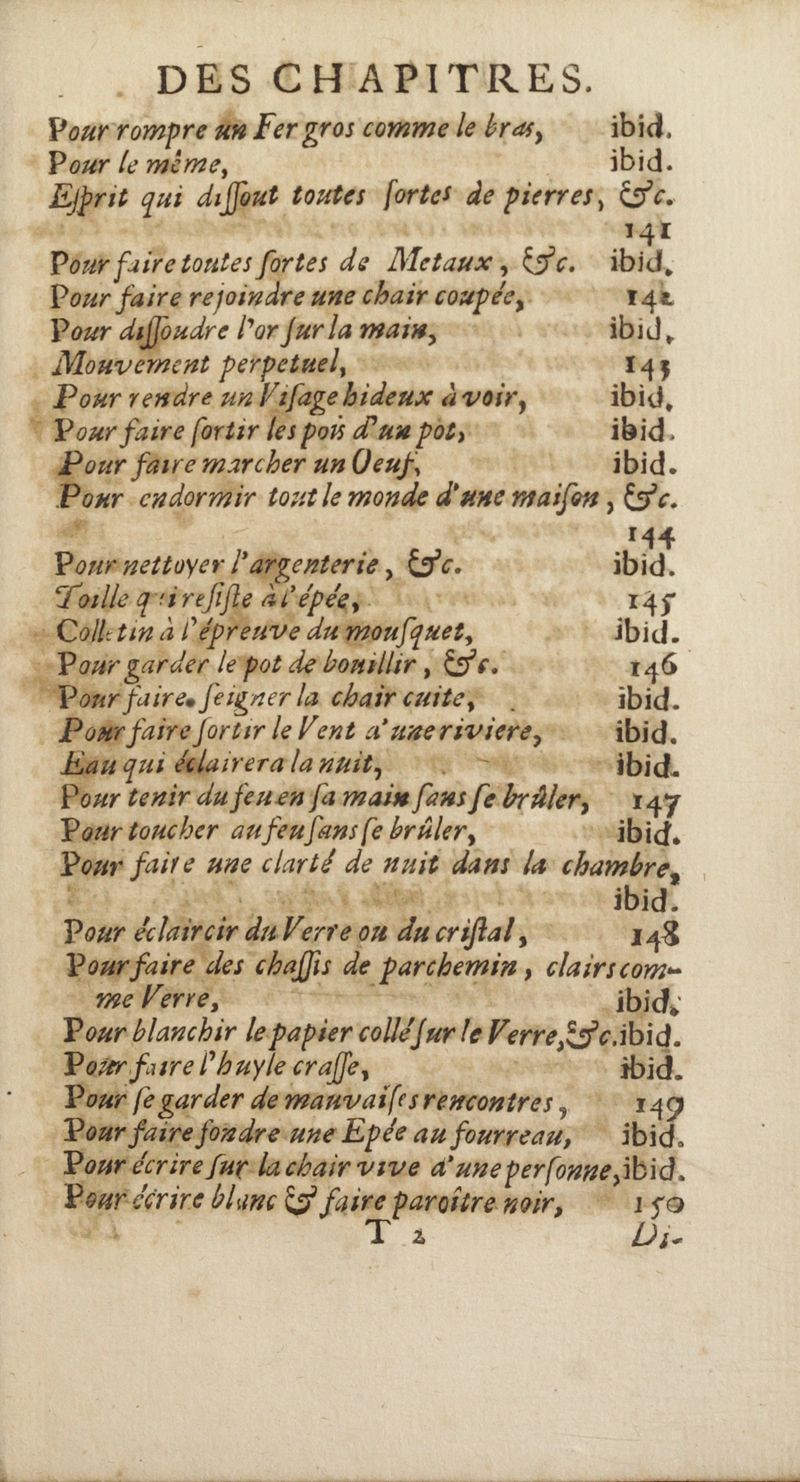 DES CHAPITRES.
Pour rompre un Fer gros comme le bras, ibid.
Pour le même, ibid.
Eſprit qui diſſout toutes ſortes de pierres, &c.
141
Pour faire toutes ſortes de Metaux, &c. ibid.
Pour faire rejoindre une chair coupée, 142
Pour diſſoudre l'or ſur la main, ibid.
Mouvement perpetuel, 143
Pour rendre un Viſage hideux à voir, ibid.
Pour faire ſortir les pois d'un pot, ibid.
Pour faire marcher un Oeuf, ibid.
Pour endormir tout le monde d'une maiſon, &c.
144
Pour nettoyer l'argenterie, &c. ibid.
Toille qui reſiſte à l'épée, 145
Colletin à l'épreuve du mouſquet, ibid.
Pour garder le pot de bouillir, &c. 146
Pour faire ſeigner la chair cuite, ibid.
Pour faire ſortir le Vent d'une riviere, ibid.
Eau qui éclairera la nuit, ibid.
Pour tenir du feu en ſa main ſans ſe brûler, 147
Pour toucher au feu ſans ſe brûler, ibid.
Pour faire une clarté de nuit dans la chambre,
ibid.
Pour éclaircir du Verre ou du criſtal, 148
Pour faire des chaſſis de parchemin, clairs com-
me Verre, ibid.
Pour blanchir le papier collé ſur le Verre, &c. ibid.
Pour faire l'huyle craſſe, ibid.
Pour ſe garder de mauvaiſes rencontres, 149
Pour faire fondre une Epée au fourreau, ibid.
Pour écrire ſur la chair vive d'une perſonne, ibid.
Pour écrire blanc & faire paroître noir, 150
T 2 Di-